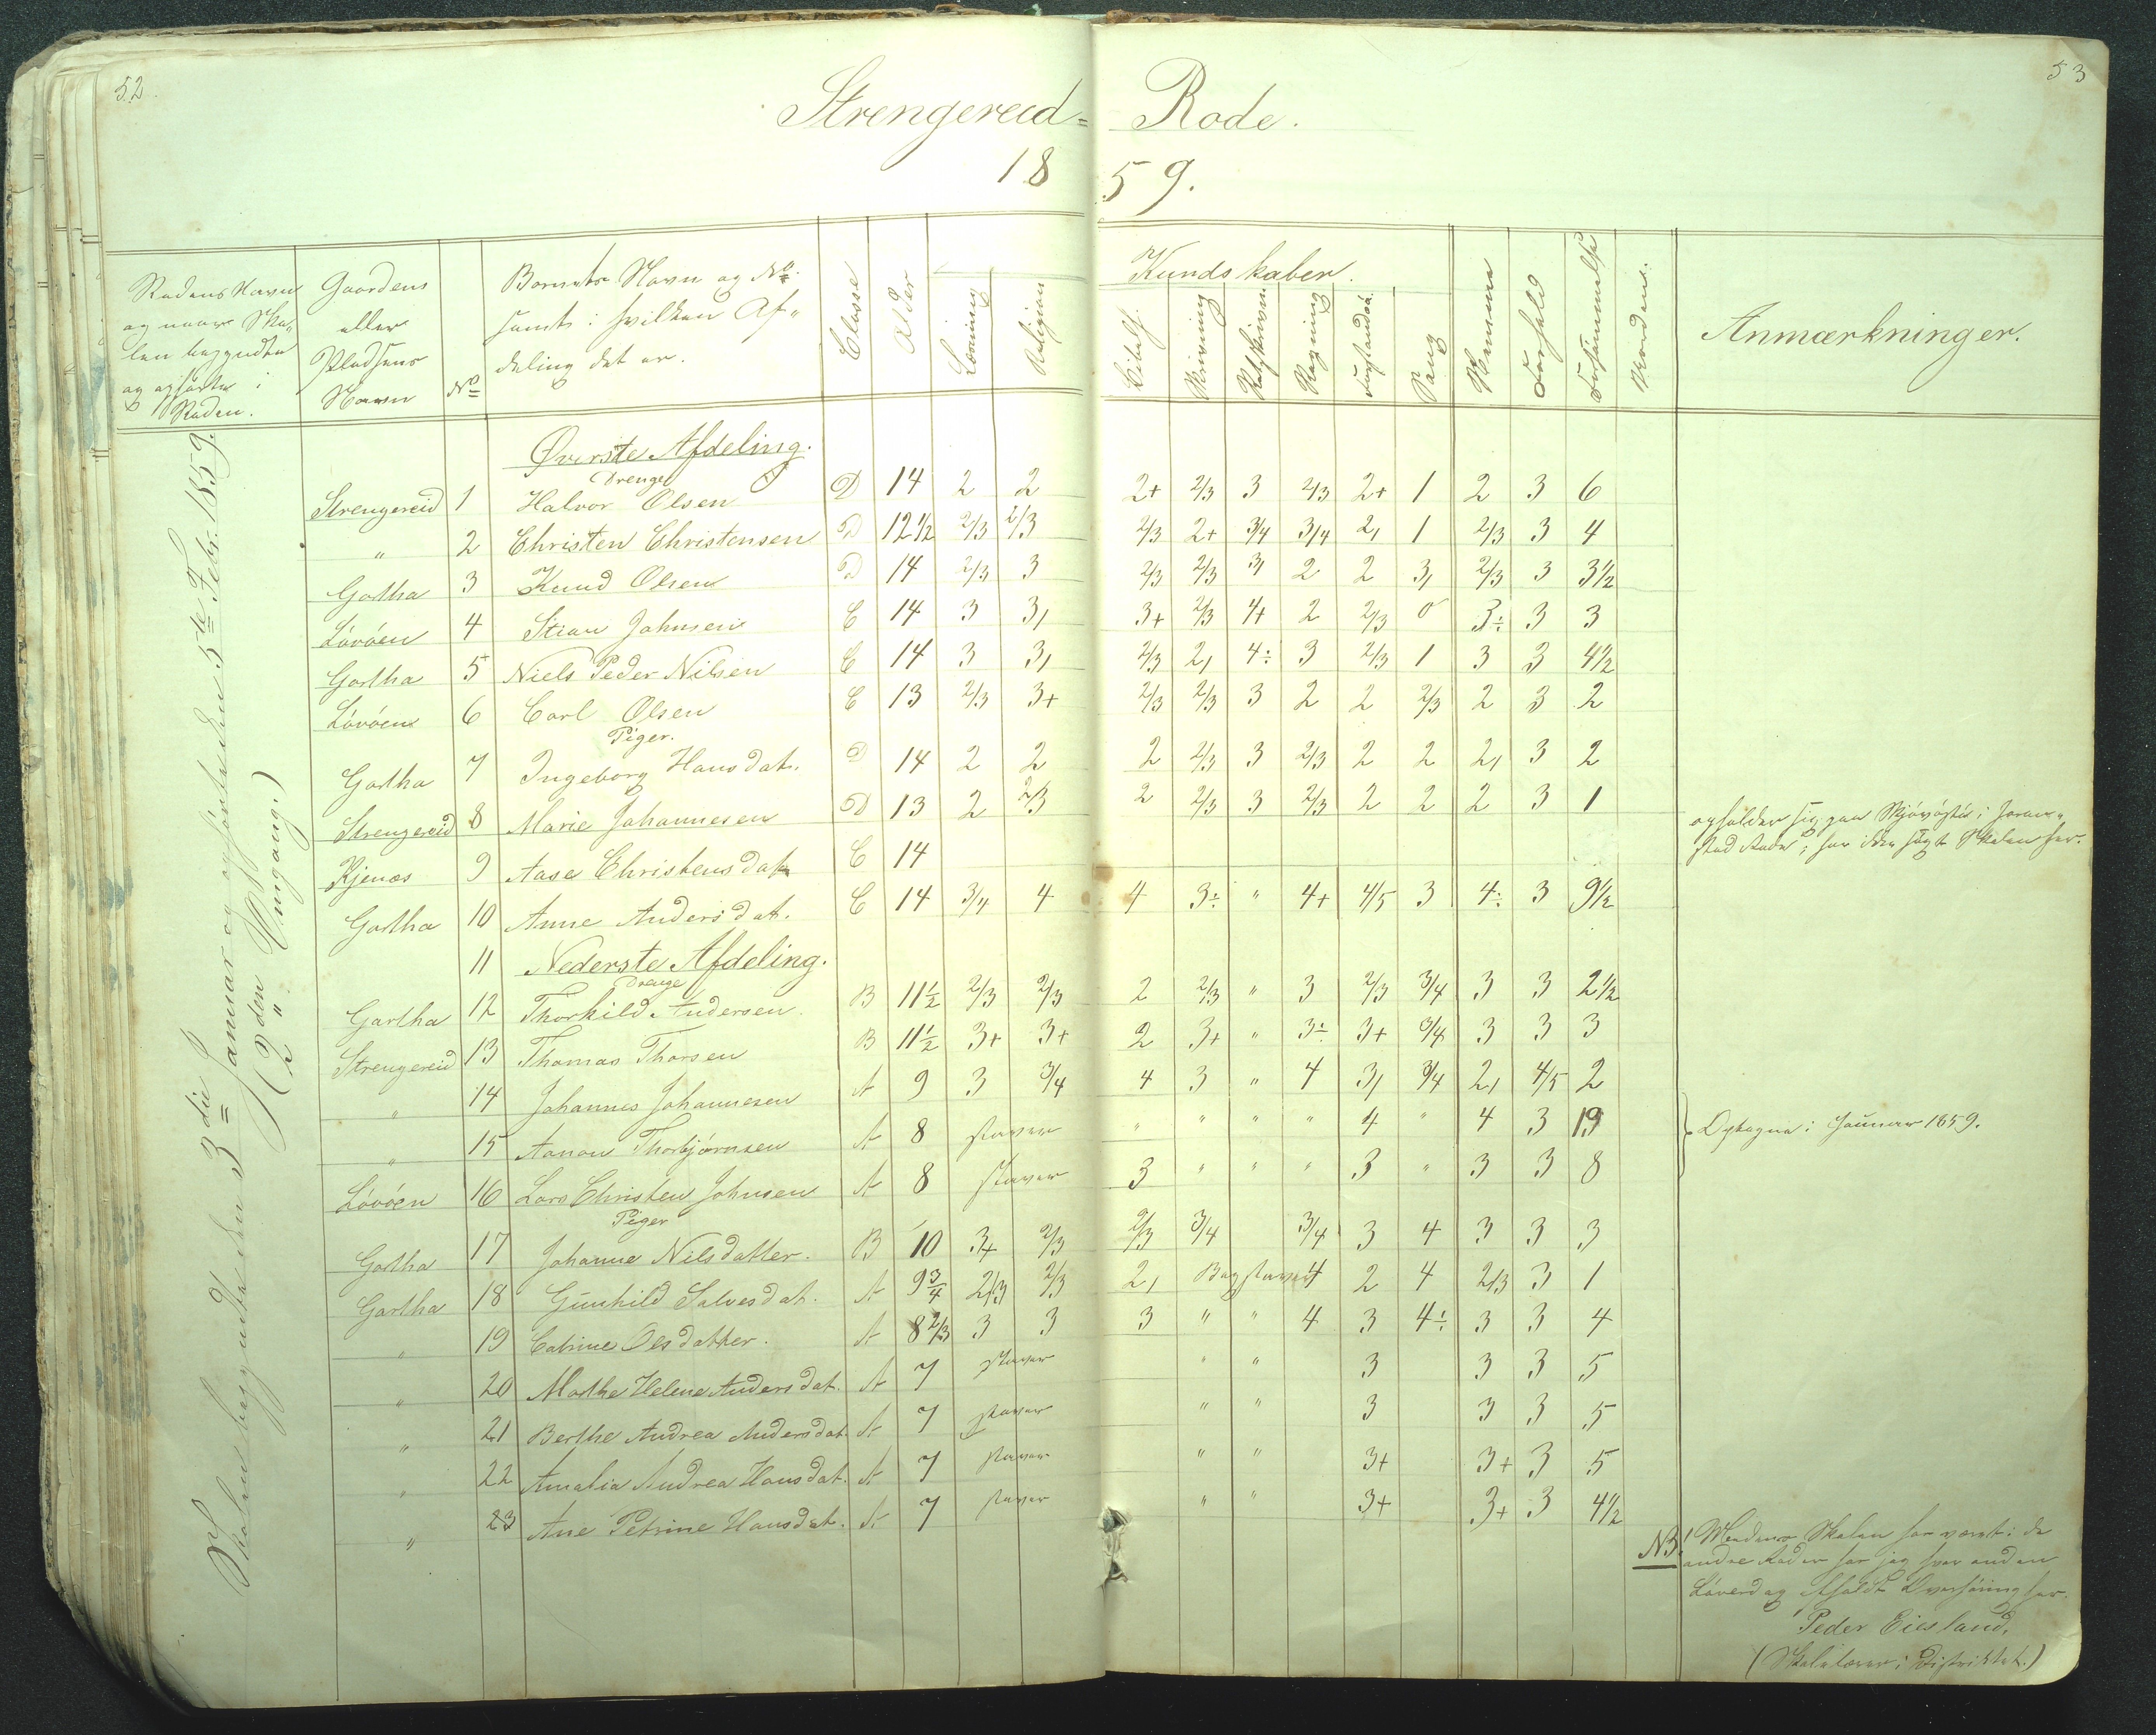 52.
53
Strengereid= Rode.
1859.
Rodens Navn
og naar Sko,,
len begyndte
og ophørte i
Roden.
Gaardens
eller
Pladsens
Navn
No
Barnets Navn og No
samt i hvilken Af,,
deling det er.
Classe
Alder
Læsning
Religion
Kundskaber.
Bibelh.
Skrivning
Retskrivn.
Regning
Sang
Nemme
Forhold
Forsømmelse
Anmærkninger.
Skolen begyndte den 3die Januar og ophørte den 5te Febr. 1859.
(2den Omgang.)
Øverste Afdeling.
Drenge
Strengereid 1 Halvor Olsen D 14 2 2 2+ 2/3 3 2/3 2+ 1 2 3 6
" 2 Christen Christensen D 12 1/2 2/3 2/3 2/3 2+ 3/4 3/4 2, 1 2/3 3 4
Gartha 3 Knud Olsen D 14 2/3 3 2/3 2/3 3, 2 2 3, 2/3 3 3 1/2
Lövöen 4 Stian Johnsen C 14 3 3, 3+ 2/3 4+ 2 2/3 0 3÷ 3 3
Gartha 5 Niels Peder Nilsen C 14 3 3, 2/3 2, 4÷ 3 2/3 1 3 3 4 1/2
Lövöen 6 Carl Olsen C 13 2/3 3+ 2/3 2/3 3 2 2 2/3 2 3 2
Piger.
Gartha 7 Ingeborg Hansdat. D 14 2 2 2 2/3 3 2/3 2 2 2, 3 2
Strengereid 8 Marie Johannesen D 13 2 2/3 2 2/3 3 2/3 2 2 2 3 1
Kjenæs 9 Aase Christensdat. C 14 opholder sig paa i
stad Rode; har ikke søgt Skolen her.
Gartha 10 Anne Andersdat. C 14 3/4 4 4 3÷ " 4+ 4/5 3 4÷ 3 9 1/2
11 Nederste Afdeling.
Drenge
Gartha 12 Thorkild Andersen. B 11 1/2 2/3 2/3 2 2/3 " 3 2/3 3/4 3 3 2 1/2
Strengereid 13 Thomas Thorsen B 11 1/2 3+ 3+ 2 3+ " 3÷ 3+ 3/4 3 3 3
" 14 Johannes Johannesen A 9 3 3/4 4 3 " 4 3, 3/4 2, 4/5 2
" 15 Aanon Thorbjörnsen A 8 staver " " " " 4 " 4 3 19 Optagne i Januar 1859.
Lövöen 16 Lars Christen Johnsen A 8 staver 3 " " " 3 " 3 3 8
Piger
Gartha 17 Johanne Nilsdatter. B 10 3+ 2/3 2/3 3/4 3/4 3 4 3 3 3
Gartha 18 Gunhild Salvesdat. A 9 3/4 2/3 2/3 2, Bogstaver 4 2 4 2/3 3 1
" 19 Catrine Olsdatter. A 8 2/3 3 3 3 " " 4 3 4÷ 3 3 4
" 20 Marthe Helene Andersdat. A 7 staver " " 3 3 3 5
" 21 Berthe Andrea Andersdat. A 7 staver " " 3 3 3 5
" 22 Amalia Andrea Hansdat. A 7 staver " " 3+ 3+ 3 5
" 23 Ane Petrine Hansdat. A 7 staver " " 3+ 3+ 3 4 1/2
NB! Medens Skolen har været i de
andre Roder har jeg hver anden
Löverdag afholdt Overhöring her.
Peder Eiesland,
(Skolelærer i Distriktet.)